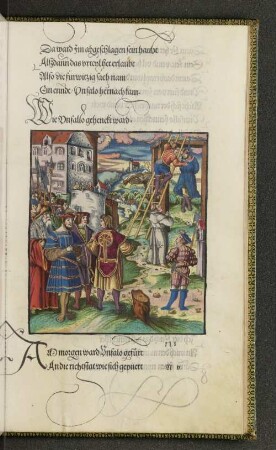 Da ward Im abgeschlagen sein haubt
Als dann das yrrens sei erlaubt
Also die furwitzig sach nam
Ein ennde Unfalo hernach kam
Wie Unfallo gehenckt ward
Am morgen ward Unfalo gefürt
An die richtstat wie sich gepuert